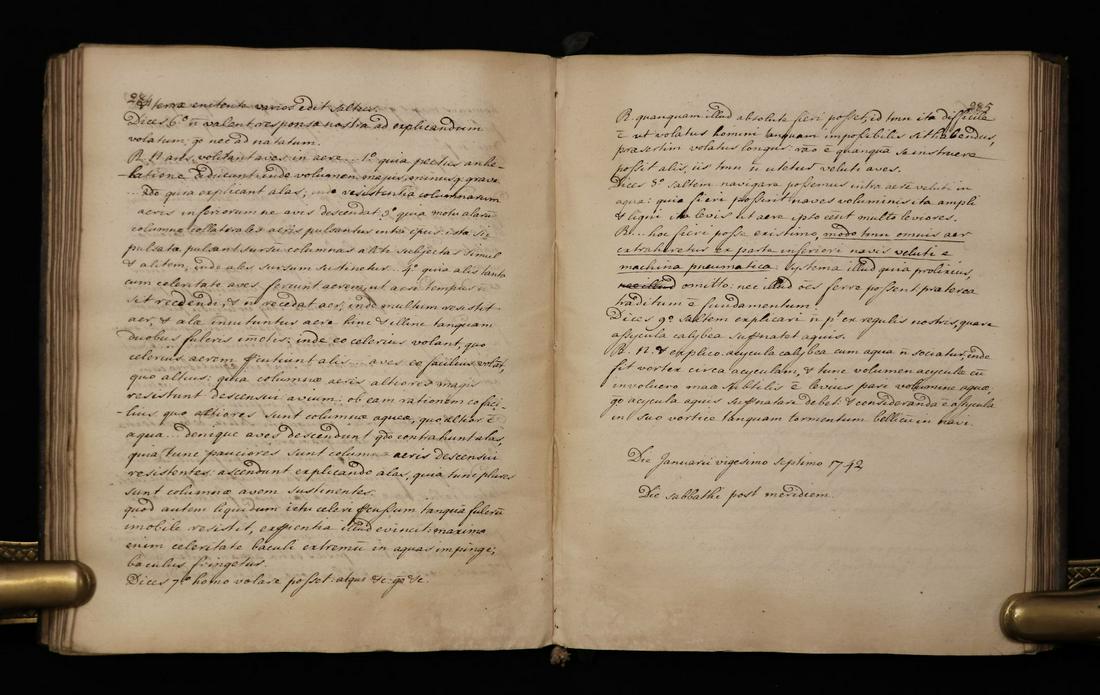 284
& terræ enitente varios edit saltus.
Dices 6.º ñ valent responsa nostra ad explicandum
volatum; go nec ad natatum.
R. N. ans. volitant aves in aere... 1.º quia pectus anhe-
-latione adducunt, unde volumen majus, minusq grave
2do quia explicant alas, inde resistentia columnarum
aeris inferiorum ne avis descendat 3.º quia motu alarum
columnæ collaterales aeris pulsantur infra ipsas: ista sic
pulsatæ pulsant sursu columnas aliti subjectas simul
& alitem, inde ales sursum sustinetur. 4.º quia alis tanta
cum celeritate aves feriunt aerem, ut aeri tempus ñ
sit recedendi, & ñ recedat aer, inde multum resistit
aer, & alæ innituntur aere hinc & illinc tanquam
duobus fulcris imotis, inde eo celerius volant, quo
celerius aerem percutiunt alis... aves eo facilius volāt
quo altius: quia columnæ aeris altiores magis
resistunt descensui avium: ob eam rationem eo faci-
-lius, quo altiores sunt columnæ aqueæ, quo altior ē
aqua... denique aves descendunt qdo contrahunt alas,
quia tunc pauciores sunt columnæ aeris descensui
resistentes. ascendunt explicando alas, quia tunc plures
sunt columnæ avem sustinentes.
quod autem liquidum ictu celeri percussum tanquā fulcrū
imobile resistit, experientia illud evincit: maxima
enim celeritate baculi extremū in aquas impinge;
baculus fringetur.
Dices 7.º homo volare posset: atqui &c. go &c.
285
R. quanquam illud absolute fieri posset, id tmn ita difficile
ē ut volatus homini tanquam impossibilis sit habendus,
præsertim volatus longus: rāo ē quanquā se instruere
possit alis, iis tmn ñ utetur veluti aves.
Dices 8.º saltem navigare possemus intra aerē veluti in
aqua: quia fieri possunt naves voluminis ita ampli
& ligni ita levis ut aere ipso essēt multo leviores.
R... hoc fieri posse existimo, modo tmn omnis aer
extraheretur ex parte inferiori navis veluti e
machina pneumatica: systema illud quia prolixius,
nec illud omitto: nec illud oēs ferre possent. præterea
traditum ē fundamentum
Dices 9.º saltem explicari ñ pt ex regulis nostris, quare
assycula calybea supernatet aquis.
R. N. & explico. acycula calybea cum aqua ñ sociatur, inde
fit vortex circa acyculam, & tunc volumen acyculæ cū
involucro mæ subtilis ē levius pari volumine aquæ,
go acycula aquis supernatare debet: & consideranda ē assycula
in suo vortice tanquam tormentum bellicū in navi.
Die Januarii vigesimo septimo 1742
Die sabbathi post meridiem.